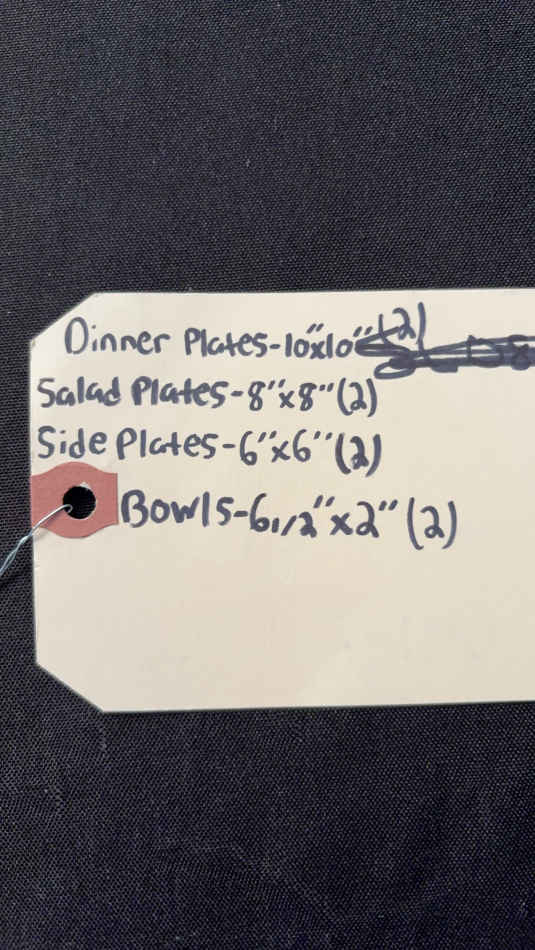 Dinner Plates-10"x10" (2)
Salad Plates-8"x8"(2)
Side Plates-6"x6"(2)
Bowls-6 1/2"x2" (2)